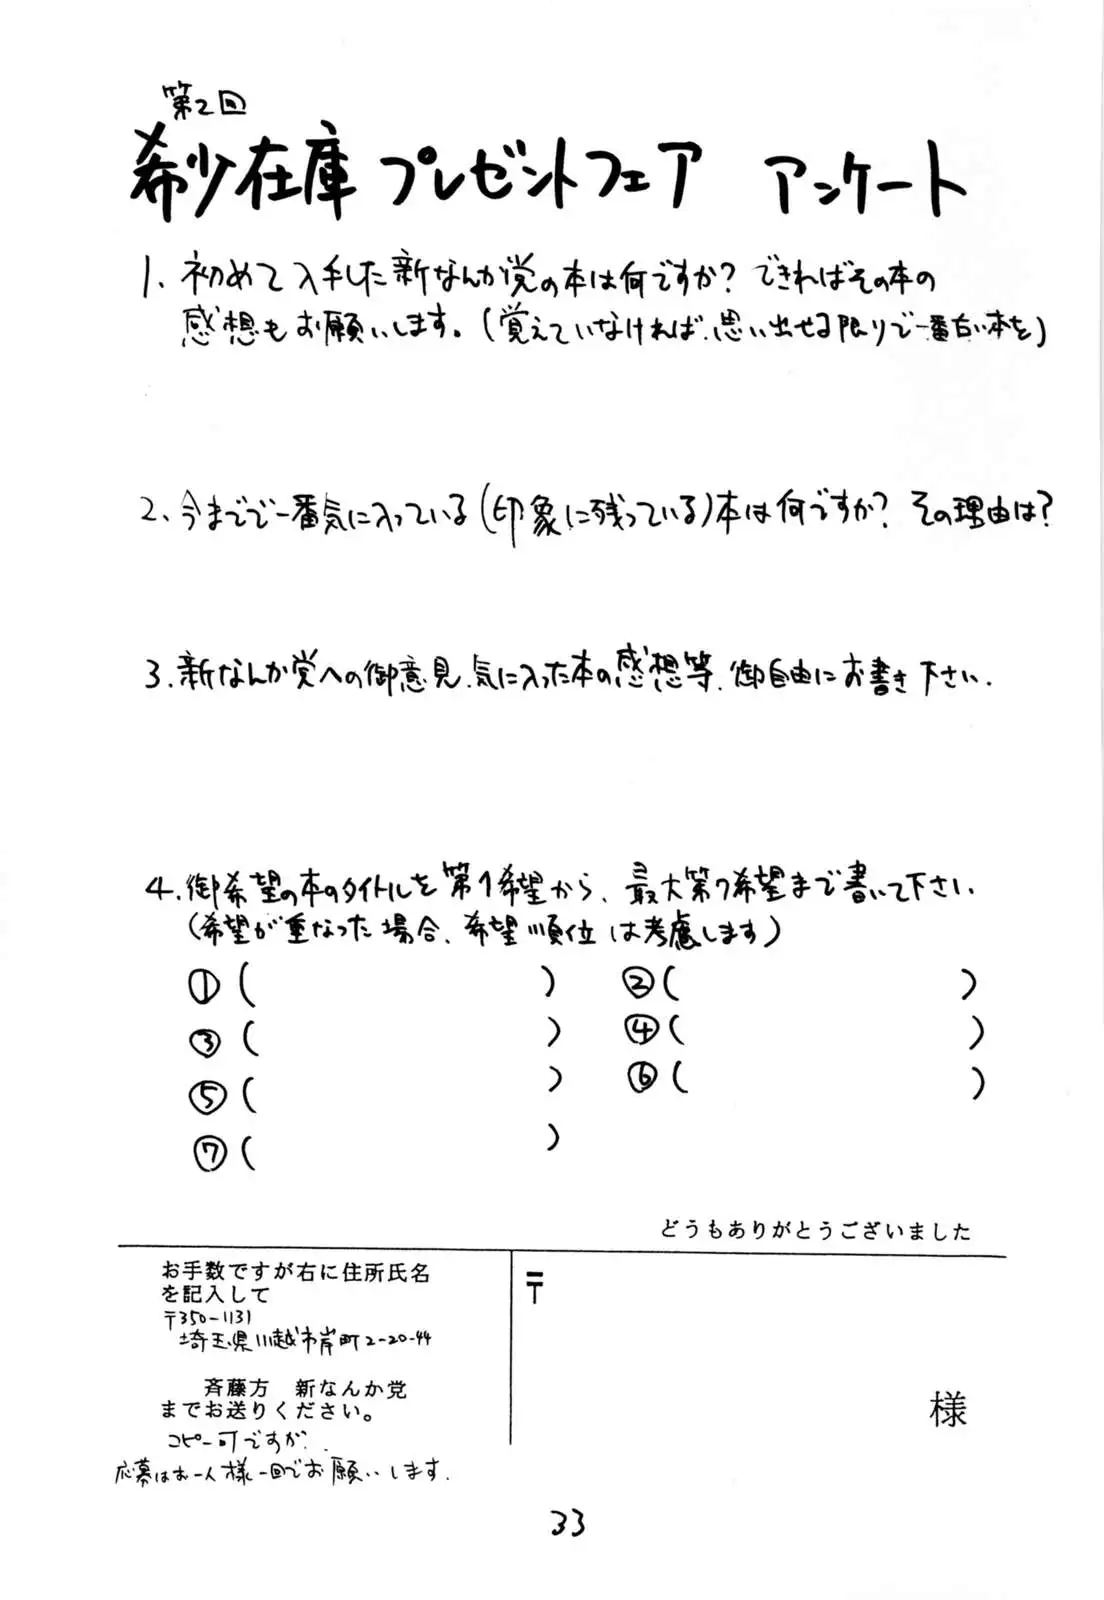 第2回
希少在庫 プレゼントフェア アンケート
1. 初めて入手した新なんか党の本は何ですか? できればその本の
感想もお願いします。(覚えていなければ、思い出せる限りで一番古い本を)
2. 今までで一番気に入っている(印象に残っている)本は何ですか? その理由は?
3. 新なんか党への御意見、気に入った本の感想等、御自由にお書き下さい.
4. 御希望の本のタイトルを第1希望から、最大第7希望まで書いて下さい.
(希望が重なった場合、希望順位は考慮します)
①( ) ②( )
③( ) ④( )
⑤( ) ⑥( )
⑦( )
どうもありがとうございました
お手数ですが右に住所氏名
を記入して
〒350-1131
埼玉県川越市岸町2-20-44
斉藤方 新なんか党
までお送りください。
コピー可ですが、
応募はお一人様一回でお願いします.
〒
様
33